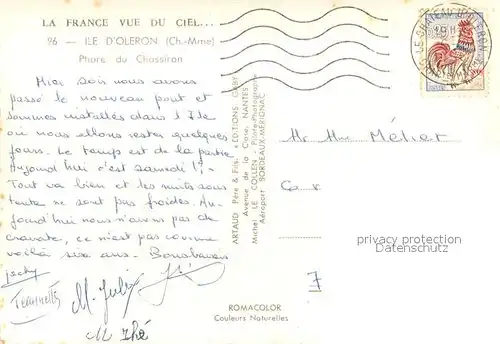 LA FRANCE VUE DU CIEL...
96 — ILE D'OLERON (Ch.-Mme)
Phare du Chassiron
Hier soir nous avons
passé le nouveau pont et
sommes installés dans l'Ile
où nous allons rester quelques
jours. Le temps est de la partie
Aujourd'hui c'est samedi !?
Tout va bien et les nuits sous
tente ne sont pas froides. Au-
jourd'hui nous n'avons pas de
cravate, ce n'est pas comme
voilà six ans.
Jeannette
M.
M
ARTAUD Père & Fils "EDITIONS GABY"
Avenue de la Close, NANTES
Michel LE COLLEN - Pilote-Photographe
Aéroport BORDEAUX-MERIGNAC
Mr Mme Métier
privacy protection
watermark
ROMACOLOR
Couleurs Naturelles